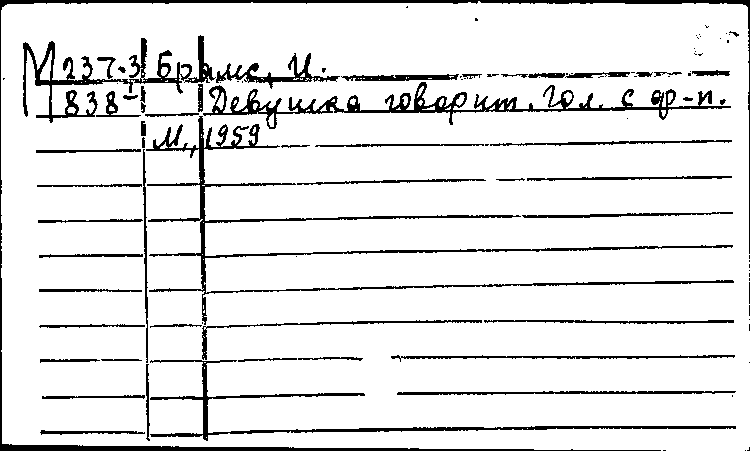 М 237.3 Брамс, И.
838-I Девушка говорит. Гол. с фр-п.
М., 1959